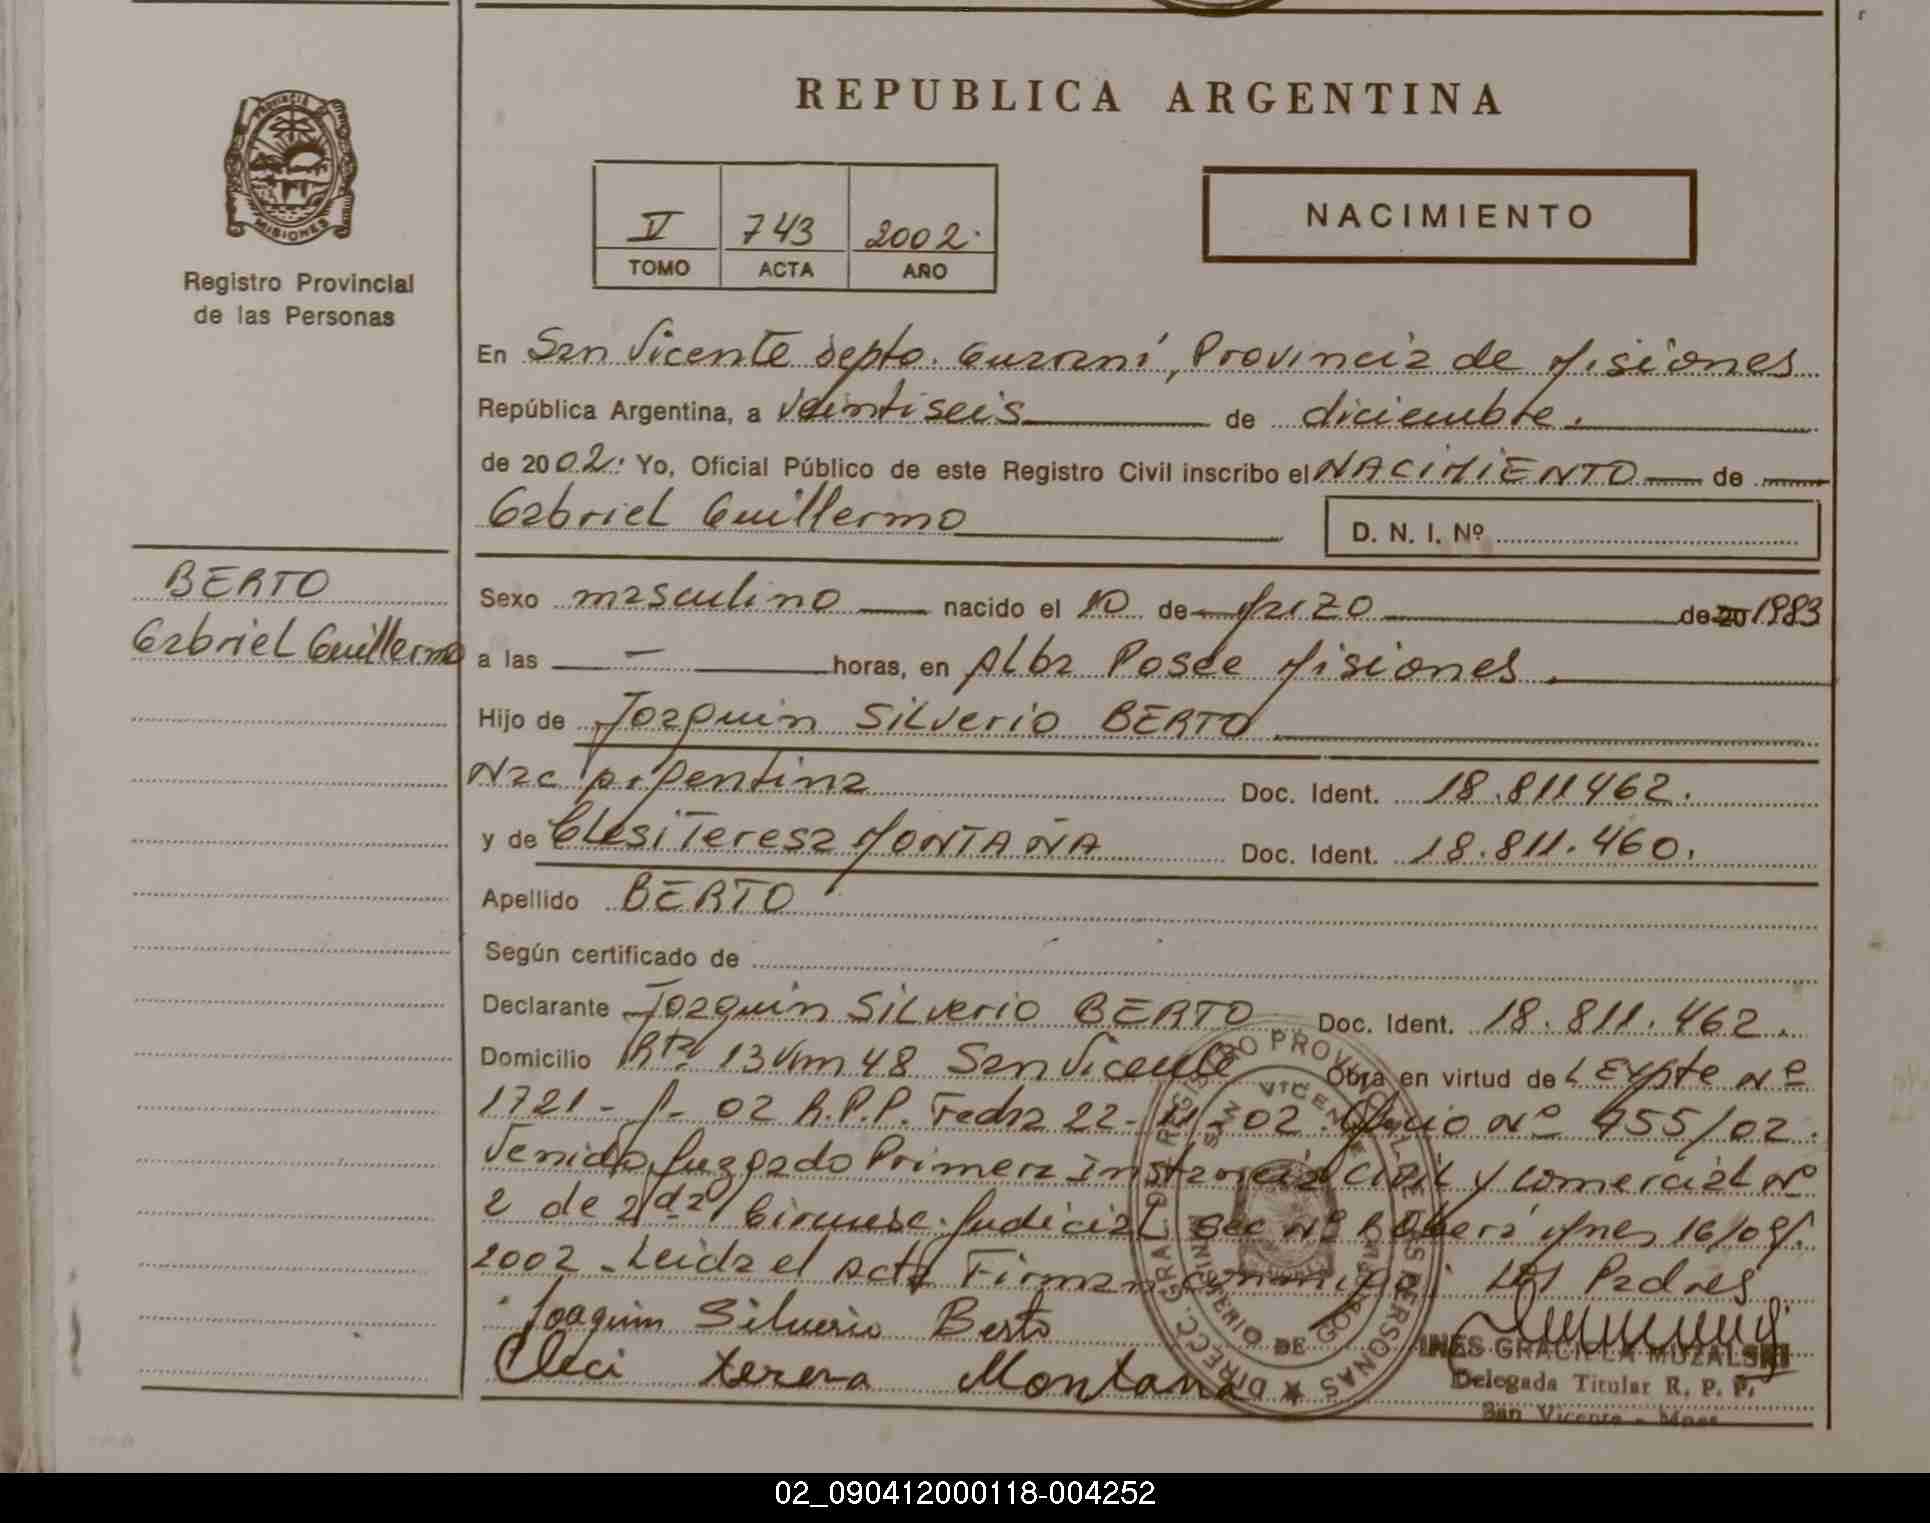 REPUBLICA ARGENTINA
PROVINCIA DE MISIONES
Registro Provincial
de las Personas
V 743 2002.
TOMO ACTA AÑO
NACIMIENTO
En San Vicente Depto. Guaraní, Provincia de Misiones
República Argentina, a Veintiseis de diciembre.
de 2002. Yo, Oficial Público de este Registro Civil inscribo el NACIMIENTO de
Gabriel Guillermo
D. N. I. Nº
BERTO
Gabriel Guillermo
Sexo masculino nacido el 10 de Marzo de 20 1983
a las — horas, en Alba Posee Misiones.
Hijo de Joaquin Silverio BERTO
Nac Argentina Doc. Ident. 18.811.462.
y de Clesi Teresa MONTAÑA Doc. Ident. 18.811.460.
Apellido BERTO
Según certificado de
Declarante Joaquin Silverio BERTO Doc. Ident. 18.811.462.
Domicilio Rta 13 Km 48 San Vicente Obra en virtud de Expte Nº
1721 - 02 R.P.P. Fecha 22-11-02. Oficio Nº 955/02.
Venido Juzgado Primera Instancia Civil y Comercial Nº
2 de 2da Circunsc. Judicial Sec Nº Oberá Mnes 16/09/.
2002 - Leida el Acta Firman conmigo: Los Padres
Joaquim Silverio Berto
Cleci terera Montana
INES GRACIELA MUZALSKI
Delegada Titular R. P. P.
San Vicente - Mnes
DIRECC. GRAL. DEL REGISTRO PROVINCIAL DE LAS PERSONAS
SAN VICENTE
MINISTERIO DE GOBIERNO
02_090412000118-004252